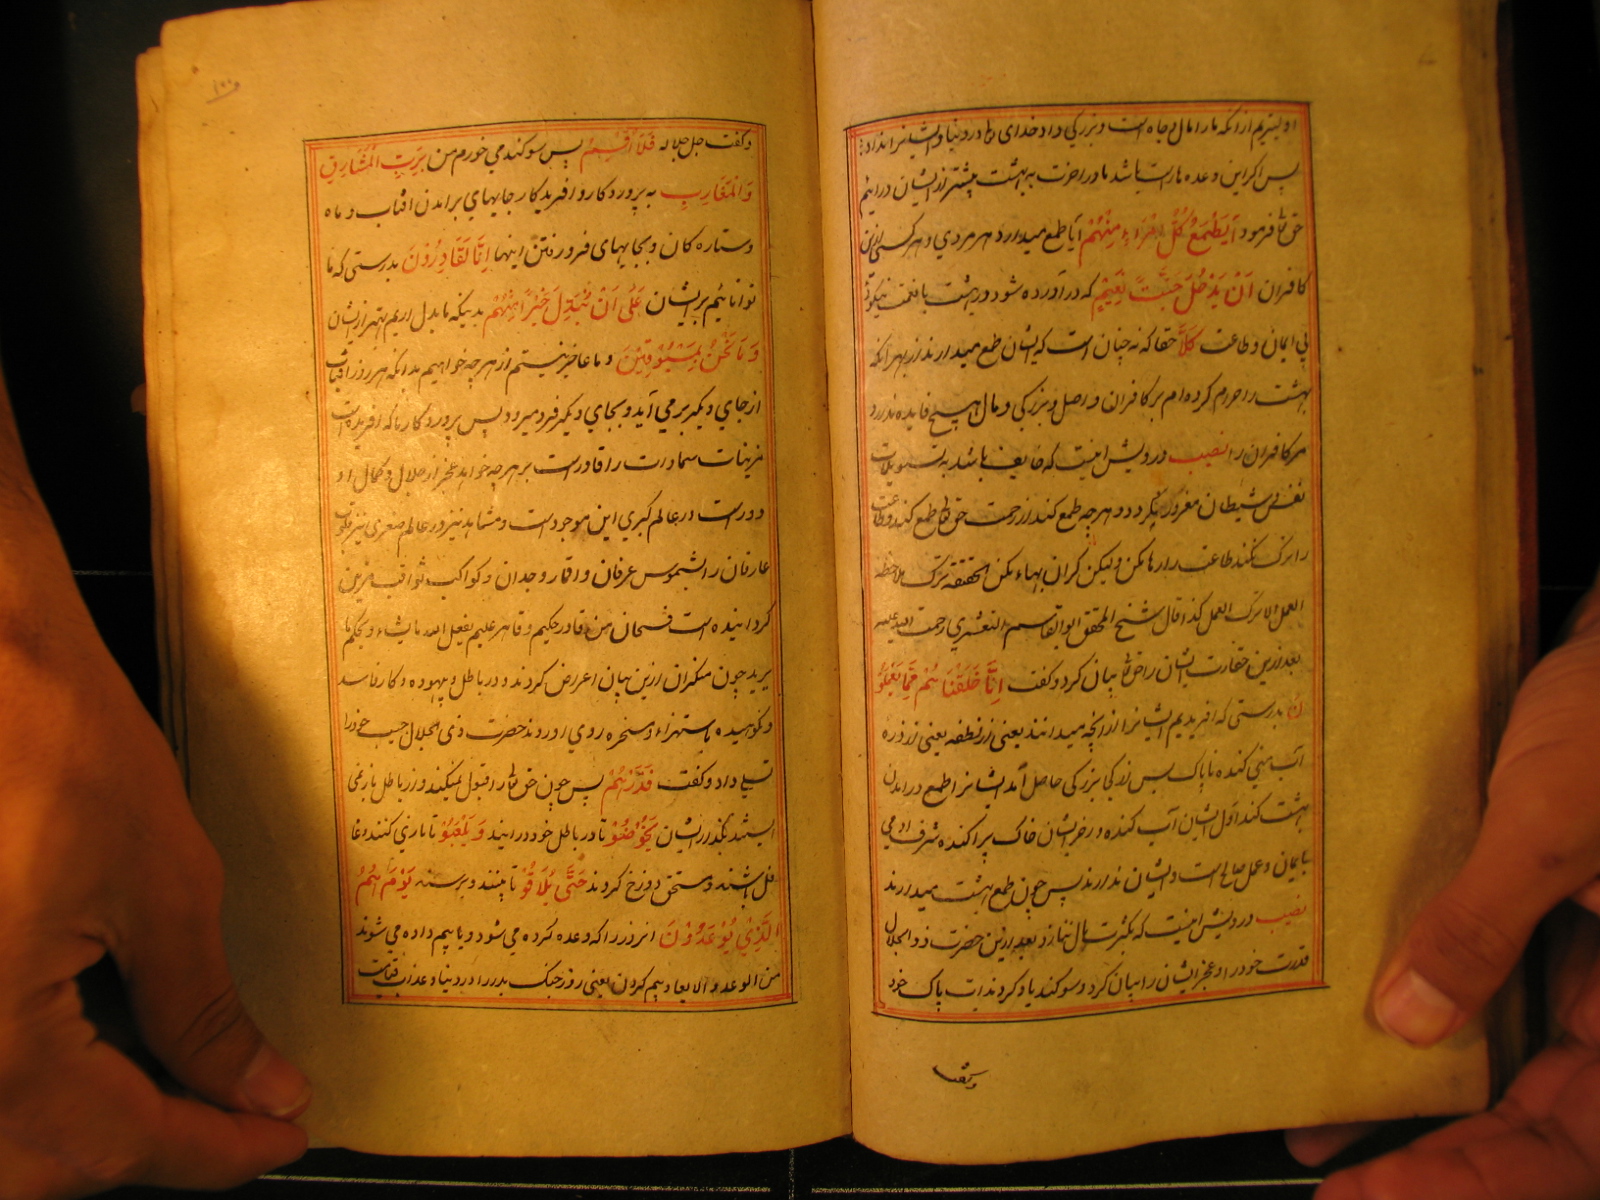 او بهتریم از انکه ما را مال و جاه است و بزرکی داد خدای تعا در دنیا و ایشانرا نداد
پس اکر این وعده راست باشد ما در اخرت به بهشت پیشتر از ایشان در اییم
حق تعا فرمود اَيَطْمَعُ كُلُّ امْرَاءٍ مِنْهُمْ آیا طمع میدارد هر مردی و هر کسی ازین
کافران اَنْ يَدْخُلَ جَنَّتَ نَعِيْمٍ که در آورده شود در بهشت با نعمت نیکو
بی ایمان و طاعت كَلَّا حقا که نه چنان است که ایشان طمع میدارند از بهر انکه
بهشت را حرام کرده ام بر کافران و اصل و بزرکی و مال هیچ فایده ندارد
مر کافران را نصیب درویش اینست که خایف باشد به تسویلات
نفس و شیطان مغرور نکردد و هر چه طمع کند از رحمت حق تعا طمع کند و طاعت
را ترک نکند طاعت را رها مکن ولیکن کران بهاء مکن الحقیقه ترک ملاحظه
العمل لا ترک العمل کذا قال شیخ المحقق ابو القاسم القشیری رحمت الله علیه
بعد ازین حقارت ایشان را حق تعا بیان کرد و کفت اِنَّا خَلَقْنَاهُمْ مِمَّا يَعْلَمُوْ
نَ بدرستی که افریدیم ایشانرا از انچه میدانند یعنی از نطفه یعنی از قطره
آب منی کنده ناپاک پس از کجا بزرکی حاصل آمد ایشانرا طمع در امدن
بهشت کنند اول ایشان آب کنده و اخر ایشان خاک پراکنده شرف ادمی
بایمان و عمل صالح است و ایشان ندارند پس چون طمع بهشت میدارند
نصیب درویش اینست که بکثرت مال ننازد بعد ازین حضرت ذو الجلال
قدرت خود را و عجز ایشان را بیان کرد و سوکند یاد کرد بذات پاک خود
وکفت
۱۰۰
وکفت جل جلاله فَلَا اُقْسِمُ پس سوکند می خورم من بِرَبِّ الْمَشَارِقِ
وَالْمَغَارِبِ به پروردکار و افریدکار جایهای بر امدن افتاب و ماه
و ستاره کان و بجایهای فرو رفتن اینها اِنَّا لَقَادِرُوْنَ بدرستی که ما
توانائیم بر ایشان عَلٰى اَنْ نُبَدِّلَ خَيْرًا مِنْهُمْ بدینکه ما بدل اریم بهتر از ایشان
وَمَا نَحْنُ بِمَسْبُوْقِيْنَ و ما عاجز نیستم از هر چه خواهیم بدانکه هر روز افتاب
از جای دیکر بر می آید و بجای دیکر فرو میرود پس پروردکار ما که افریده است
مزینات سماوات را قادر است بر هر چه خواهد عجز از جلال و کمال او
دور است در عالم کبری این موجود است و مشاهد نیز در عالم صغری نیز قلوب
عارفان را بشموس عرفان و اقمار وجدان و کواکب ثواقب مزین
کردانیده است فسبحان من قادر حکیم و قاهر علیم یفعل الله ما یشاء و یحکم ما
یرید چون منکران ازین بیان اعراض کردند و در باطل و بیهوده و کار فاسد
و نکوهیده باستهزاء و سخره روی اوردند حضرت ذی الجلال حبیب خود را
تسلی داد و کفت فَذَرْهُمْ پس چون حق تعا را قبول نمیکنند و از باطل باز نمی
ایستند بکذار ایشان يَخُوْضُوْ تا در باطل خود در ایند وَيَلْعَبُوْ تا بازی کنند و غا
فل باشند و مستحق دوزخ کردند حَتّٰى يُلَاقُوْ تا ببینند و برسند يَوْمَهُمُ
الَّذِيْ يُوْعَدُوْنَ انروز را که وعده کرده می شود و یا بیم داده می شوند
من الوعد و الایعاد بیم کردن یعنی روز جنک بدر را در دنیا و عذاب قیامت